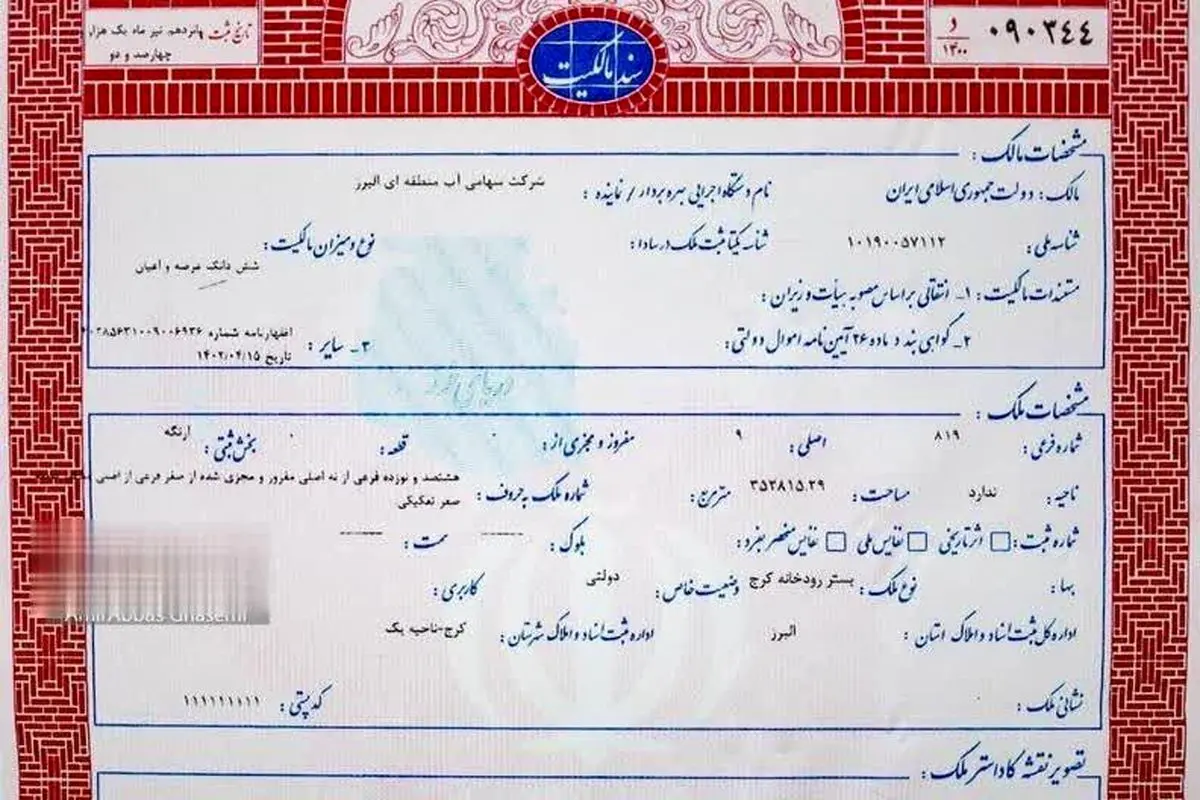 تاریخ ثبت پانزدهم تیر ماه یک هزار
چهارصد و دو
سند مالکیت
۰۹۰۳۴۴ د ۱۴۰۰
مشخصات مالک :
مالک : دولت جمهوری اسلامی ایران نام دستگاه اجرایی بهره بردار / نماینده : شرکت سهامی آب منطقه ای البرز
شناسه ملی : ۱۰۱۹۰۰۵۷۱۱۲ شناسه یکتا ثبت ملک در سادا : نوع و میزان مالکیت : شش دانگ عرصه و اعیان
مستندات مالکیت : ۱- انتقالی بر اساس مصوبه هیأت وزیران :
۲- گواهی بند د ماده ۲۶ آیین نامه اموال دولتی : ۳- سایر : اظهارنامه شماره
تاریخ ۱۴۰۲/۰۴/۱۵
مشخصات ملک :
شماره فرعی : ۸۱۹ اصلی : ۹ مفروز و مجزی از : ۰ قطعه : ۰ بخش ثبتی : ارنگه
ناحیه : ندارد مساحت : ۳۵۲۸۱۵.۲۹ مترمربع : شماره ملک به حروف : هشتصد و نوزده فرعی از نه اصلی مفروز و مجزی شده از صفر فرعی از اصلی
صفر تفکیکی
شماره ثبت : اثر تاریخی نفایس ملی نفایس منحصر بفرد : بلوک : ------ سمت : ------
بها : نوع ملک : بستر رودخانه کرج وضعیت خاص : دولتی کاربری :
اداره کل ثبت اسناد و املاک استان : البرز اداره ثبت اسناد و املاک شهرستان : کرج-ناحیه یک
نشانی ملک : کد پستی : ۱۱۱۱۱۱۱۱۱۱
تصویر نقشه کاداستر ملک :